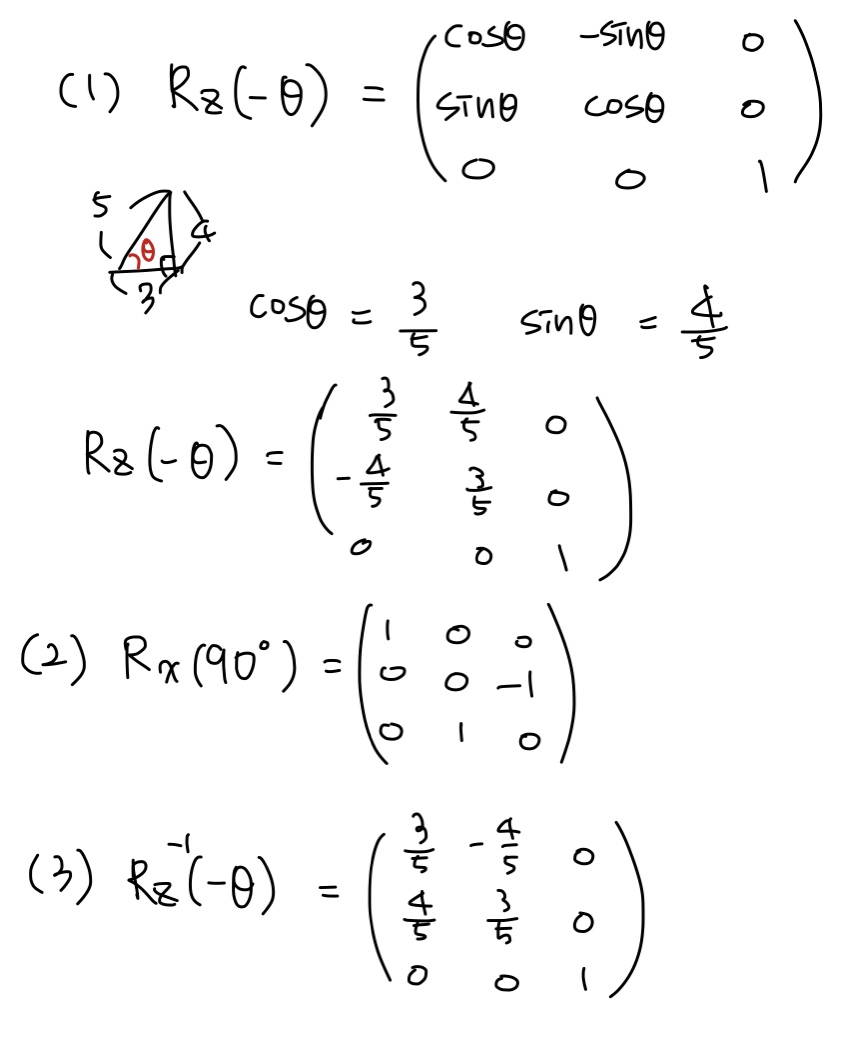 (1) Rz(-θ) = (cosθ -sinθ 0
sinθ cosθ 0
0 0 1)
5 4
θ
3
cosθ = 3/5 sinθ = 4/5
Rz(-θ) = (3/5 4/5 0
-4/5 3/5 0
0 0 1)
(2) Rx(90°) = (1 0 0
0 0 -1
0 1 0)
(3) Rz⁻¹(-θ) = (3/5 -4/5 0
4/5 3/5 0
0 0 1)